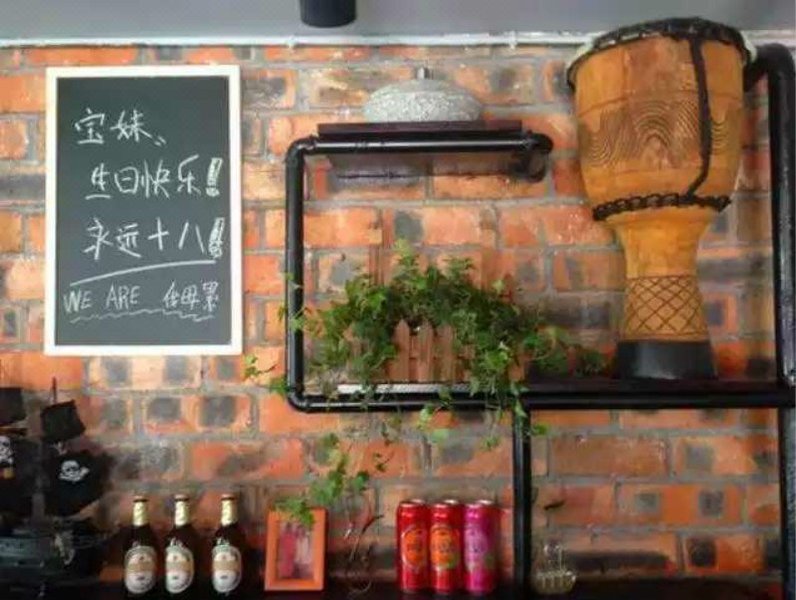 宝妹、
生日快乐!
永远十八!
WE ARE 任毋累